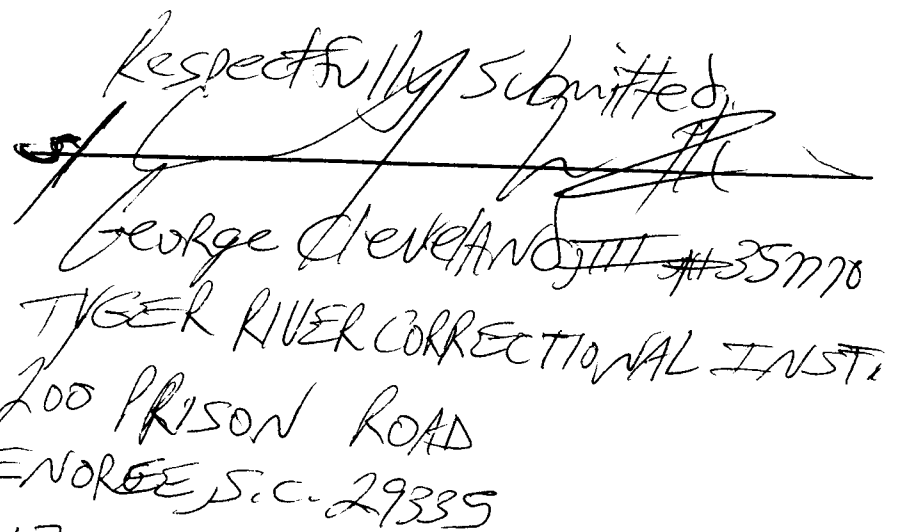 Respectfully Submitted,
s/
George Cleveland, III #357770
TYGER RIVER CORRECTIONAL INST.
200 PRISON ROAD
ENOREE, S.C. 29335